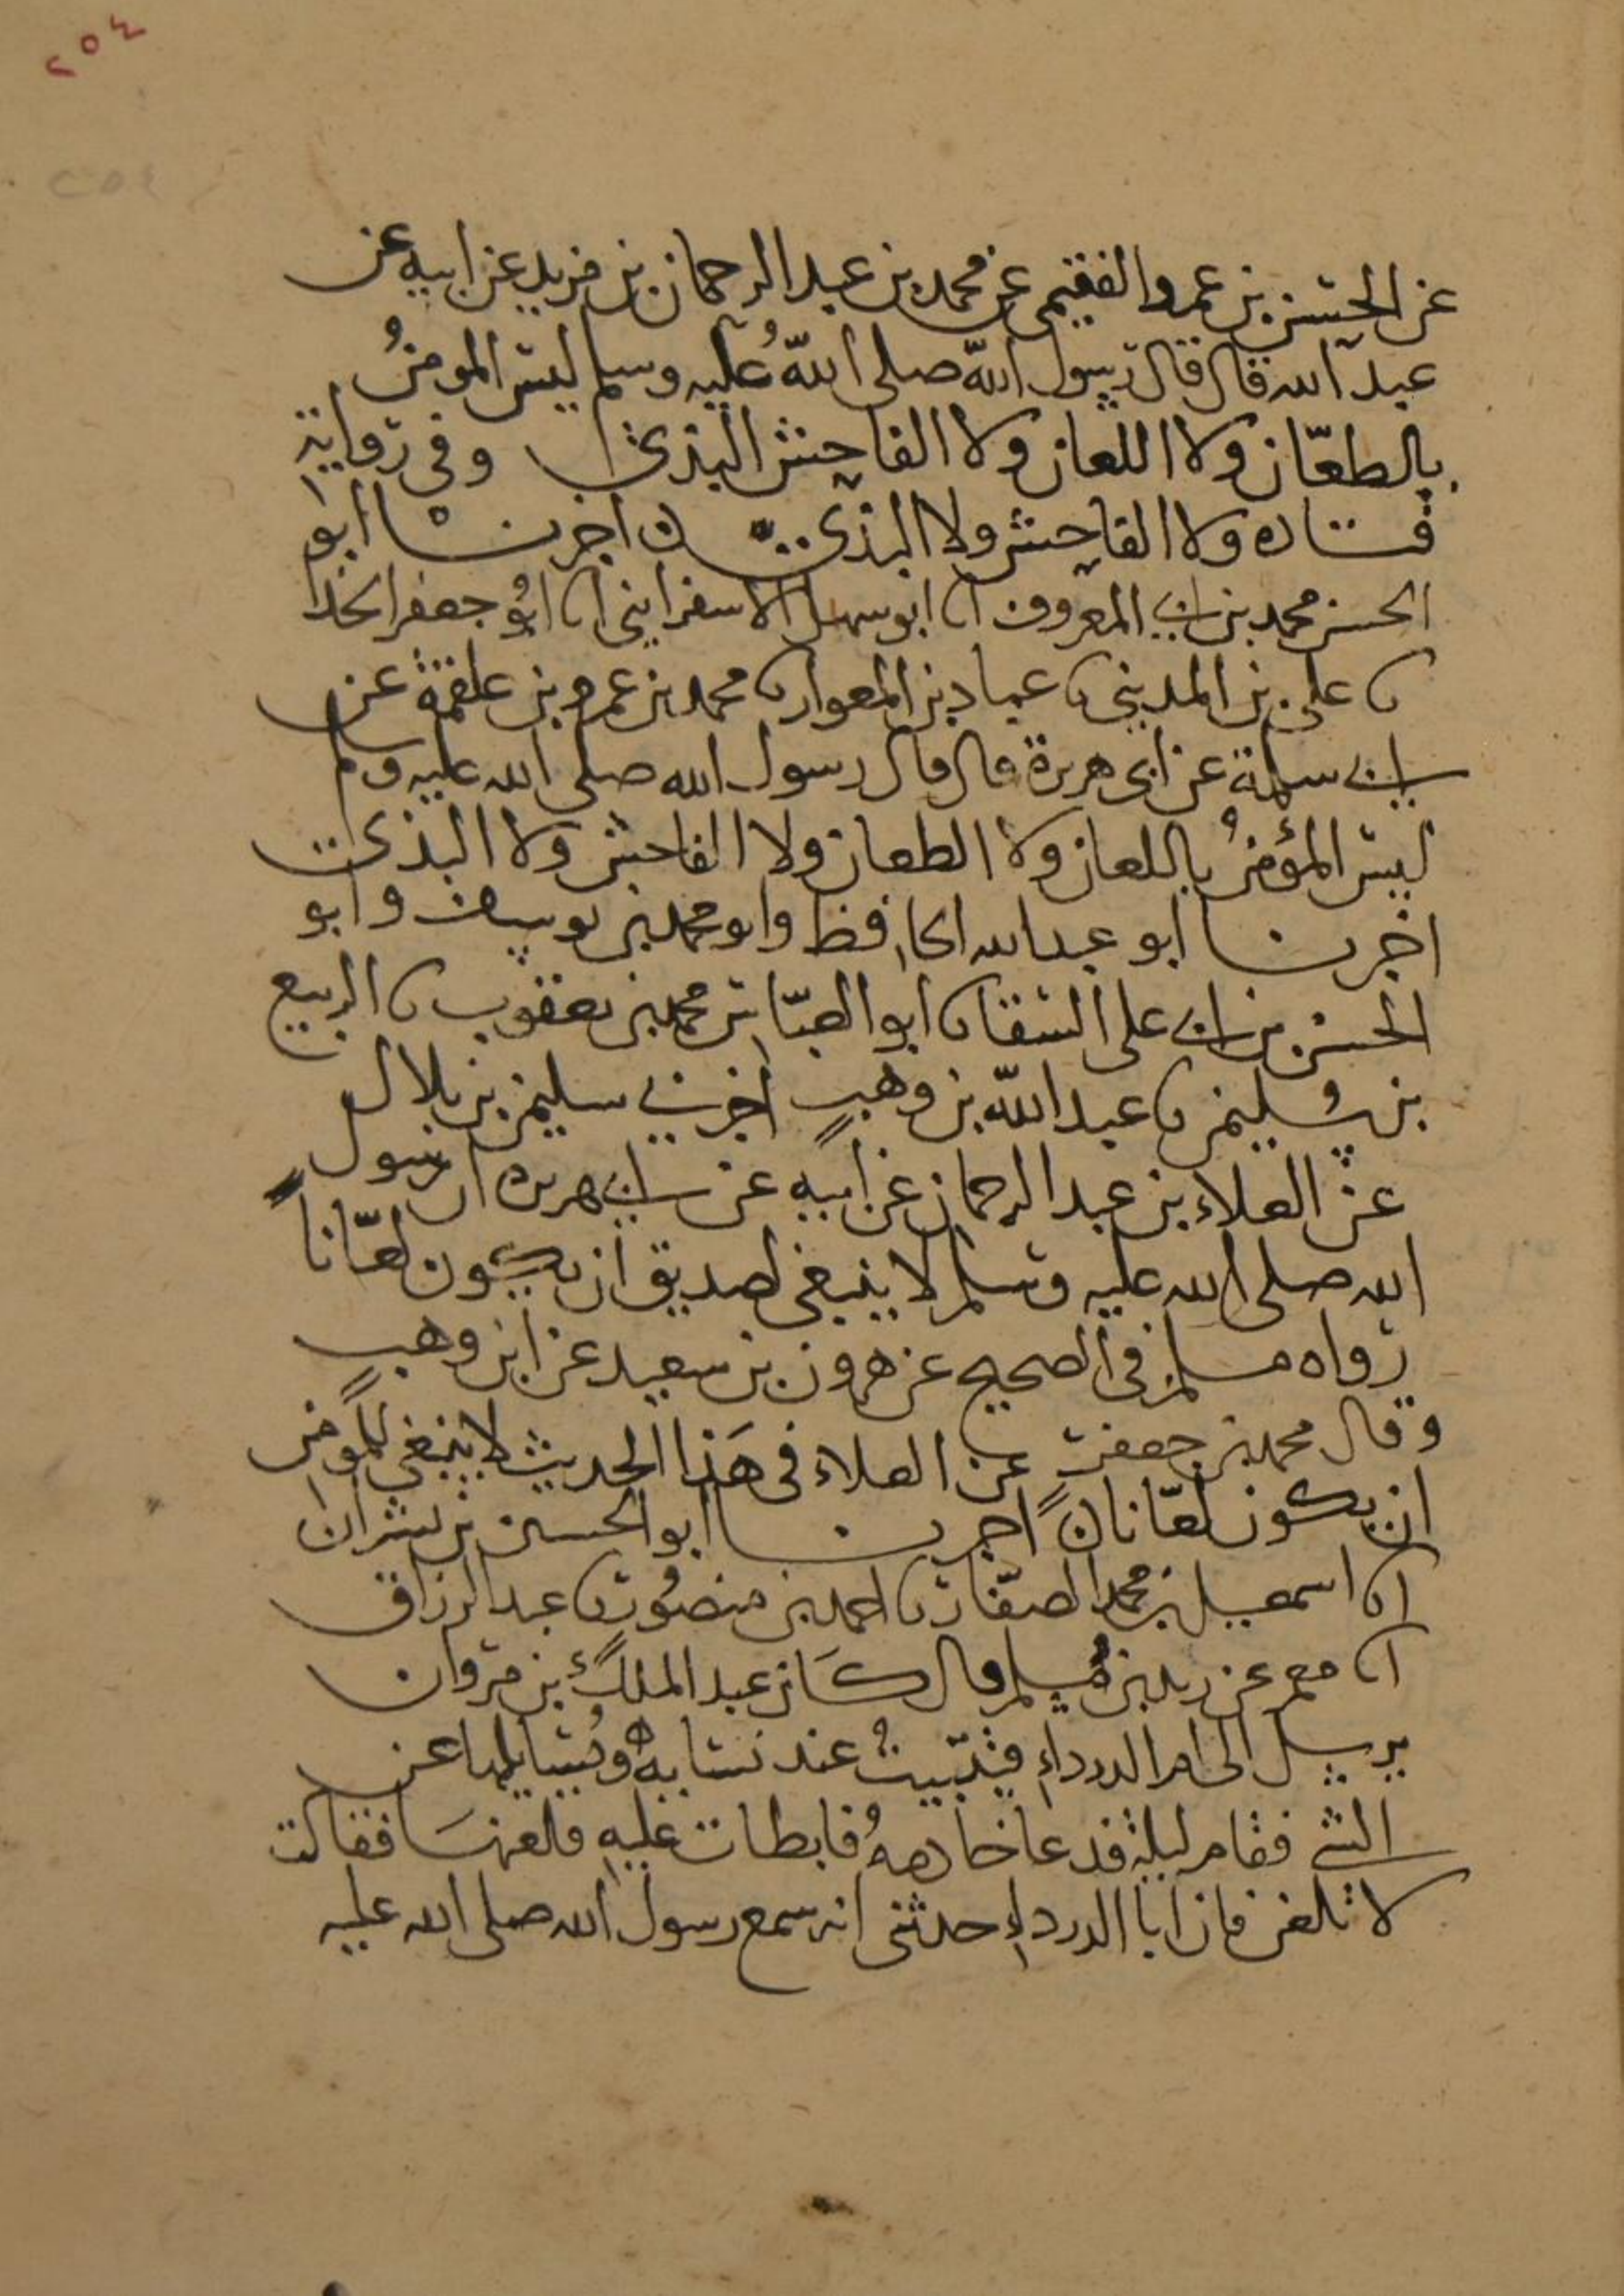 ٢٥٤
٢٥٤
عن الحسن بن عمرو الفقيمي عن محمد بن عبد الرحمان بن يزيد عن ابيه عن
عبد الله قال قال رسول الله صلى الله عليه وسلم ليس المومنُ
بالطعّان ولا اللعان ولا الفاحش البذئ وفي رواية
قتاده ولا الفاحش ولا البذئ اخبرنا ابو
الحسن محمد بن ابي المعروف انا ابو سهل الاسفرايني انا ابو جعفر الحذا
نا علي بن المديني نا عباد بن العوام نا محمد بن عمرو بن علقمة عن
ابي سلمة عن ابي هريرة قال قال رسول الله صلى الله عليه وسلم
ليس المؤمنُ باللعان ولا الطعان ولا الفاحش ولا البذئ
اخبرنا ابو عبد الله الحافظ وابو محمد بن يوسف وابو
الحسن بن ابي علي السقا نا ابو العبّاس محمد بن يعقوب نا الربيع
بن سليمن نا عبد اللّه بن وهبٍ اخبرني سليمن بن بلال
عن العلاء بن عبد الرحمان عن ابيه عن ابي هريره ان رسول
الله صلى الله عليه وسلم لا ينبغي لصديق ان يكون لعّاناً
رواه مسلم في الصحيح عن هرون بن سعيد عن ابن وهبٍ
وقال محمد بن جعفر عن العلاء في هَذا الحديث لا ينبغي للمومن
ان يكون لعّاناً اخبرنا ابو الحسين بن بشران
انا اسمعيل بن محمد الصفّار نا احمد بن منصُور نا عبد الرزاق
انا معمر عن زيد بن مُسلم قال كَان عبد الملك بن مروان
يرسل الى ام الدرداءِ فتبيتُ عند نسايه ويُسايلها عن
الشي فقام ليلة فدعا خادمهُ فابطات عليه فلعنهَا فقالت
لا تلعن فان ابا الدرداءِ حدثني انه سمع رسول الله صلى الله عليه